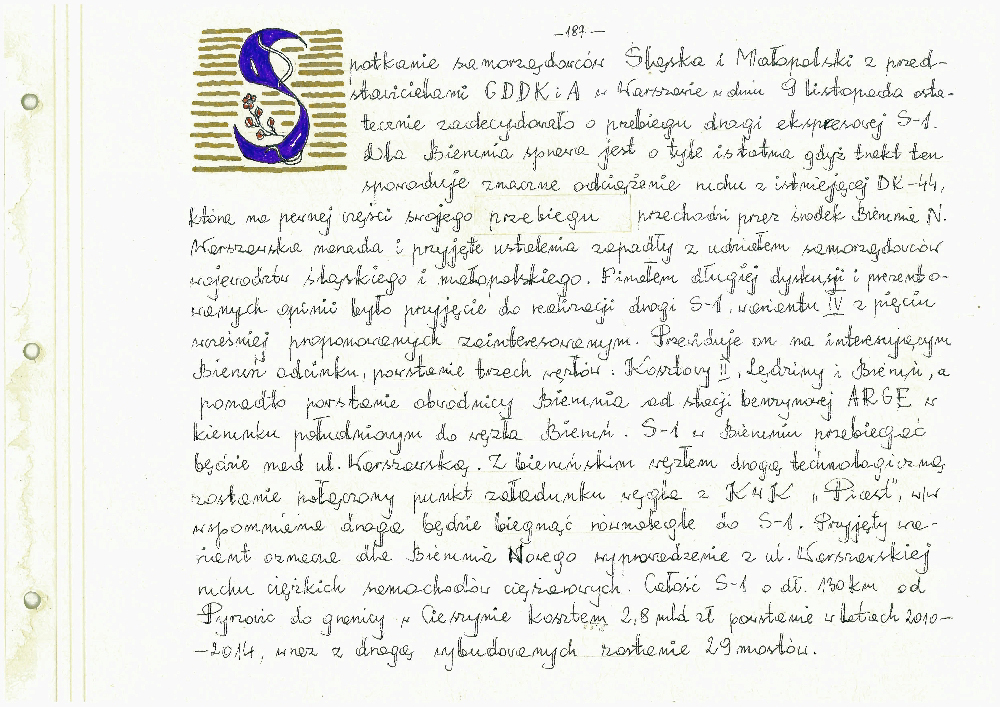 –187–
Spotkanie samorzędowców Śląska i Małopolski z przed-
stawicielami GDDKiA w Warszawie w dniu 9 listopada osta-
tecznie zadecydowało o przebiegu drogi ekspresowej S-1.
Dla Bierunia sprawa jest o tyle istotna gdyż trakt ten
spowoduje znaczne odciążenie ruchu z istniejącej DK-44,
która na pewnej części swojego przebiegu przechodzi przez środek Bierunia N.
Warszawska narada i przyjęte ustalenia zapadły z udziałem samorzędowców
województw śląskiego i małopolskiego. Finałem długiej dyskusji i prezento-
wanych opinii było przyjęcie do realizacji drogi S-1, wariantu IV z pięciu
wcześniej proponowanych zainteresowanym. Przewiduje on na interesującym
Bieruń odcinku, powstanie trzech węzłów: Kosztowy II, Lędziny i Bieruń, a
ponadto powstanie obwodnicy Bierunia od stacji benzynowej ARGE w
kierunku południowym do węzła Bieruń. S-1 w Bieruniu przebiegać
będzie nad ul. Warszawską. Z bieruńskim węzłem drogą technologiczną
zostanie połączony punkt załadunku węgla z KWK „Piast", w/w
wspomniana droga będzie biegnąć równolegle do S-1. Przyjęty wa-
riant oznacza dla Bierunia Nowego wyprowadzenie z ul. Warszawskiej
ruchu ciężkich samochodów ciężarowych. Całość S-1 o dł. 130 km od
Pyrzowic do granicy w Cieszynie kosztem 2,8 mld zł powstanie w latach 2010-
-2014, wraz z drogą wybudowanych zostanie 29 mostów.